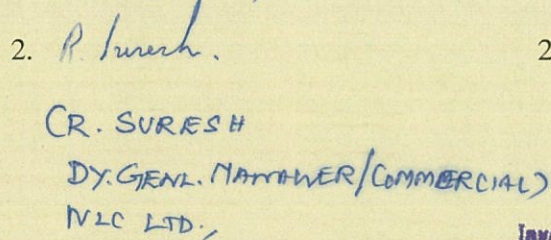 2. R. Suresh. 2
(R. SURESH
DY. GENL. MANAGER/COMMERCIAL)
NLC LTD.,